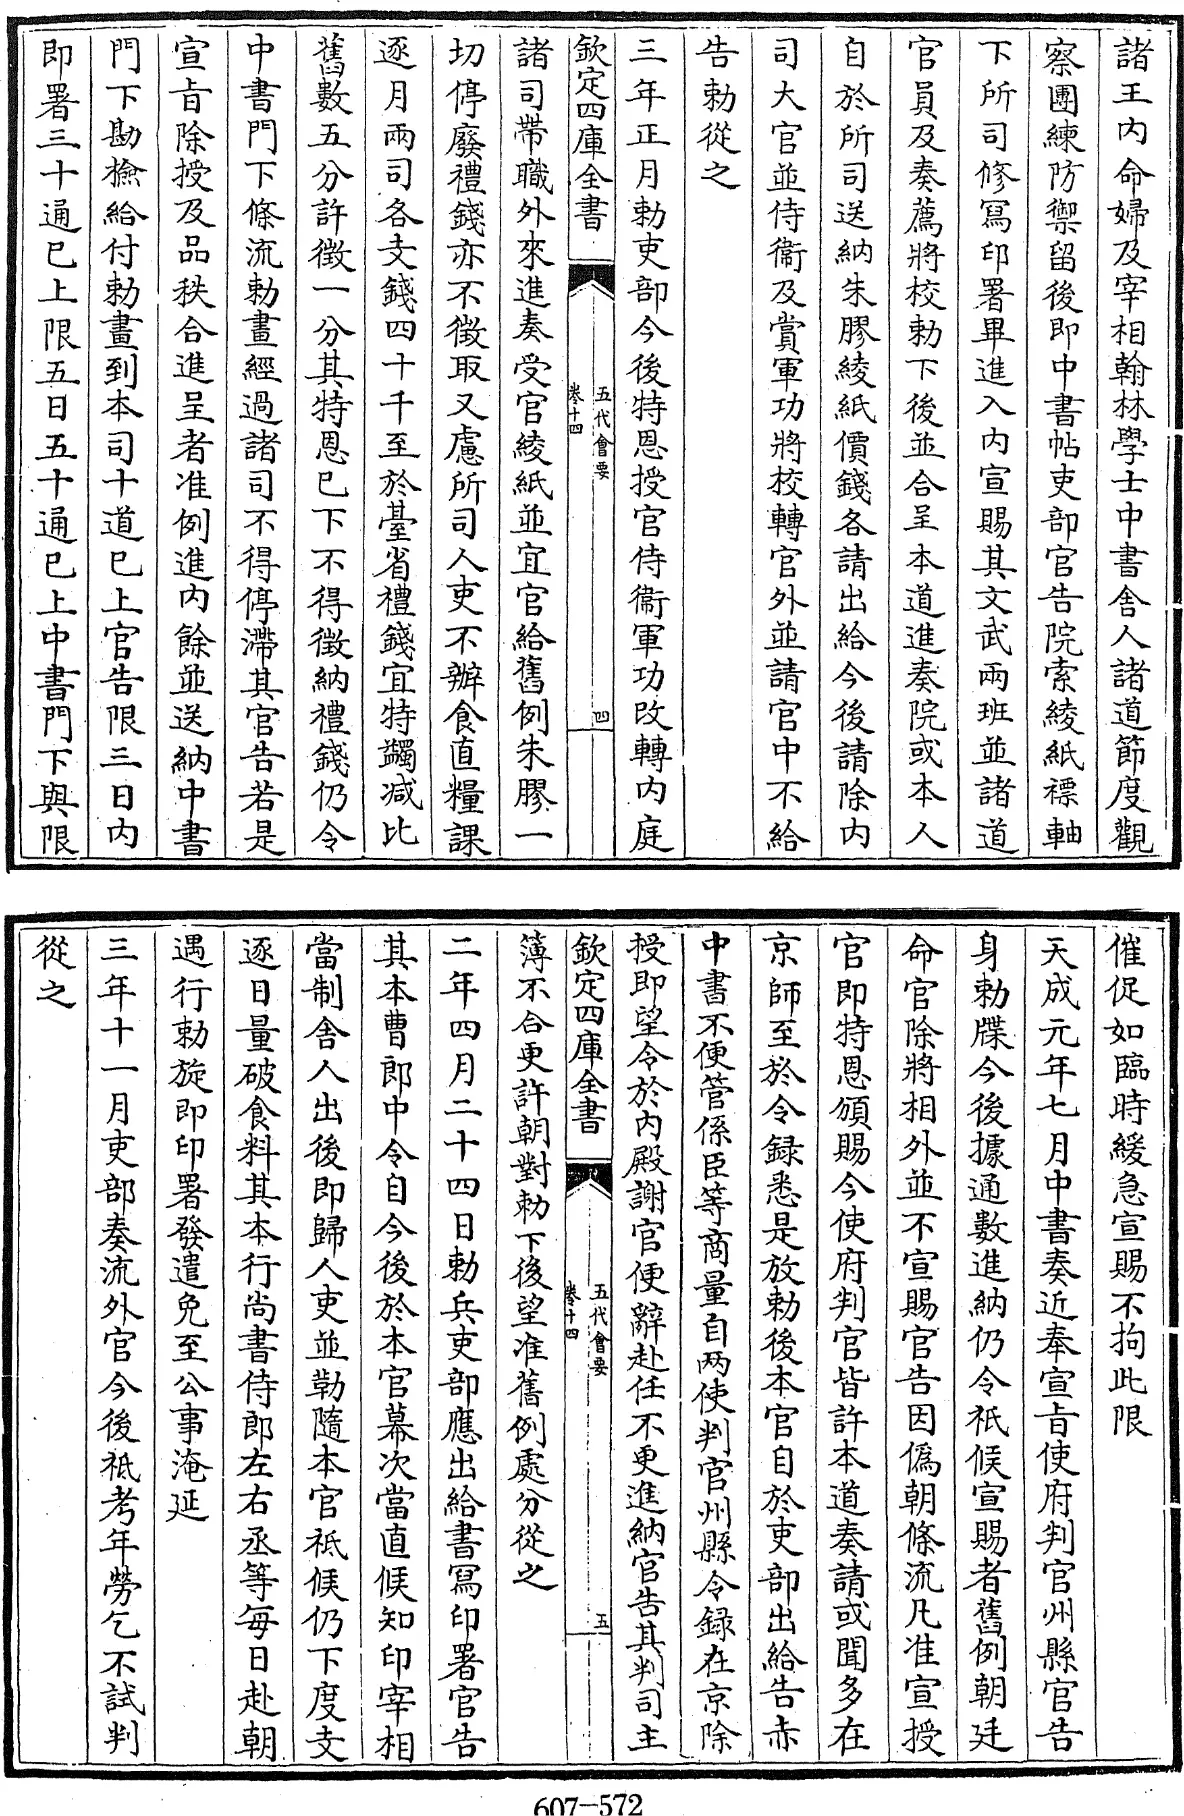 諸王内命婦及宰相翰林學士中書舎人諸道節度觀
察團練防禦留後即中書帖吏部官告院索綾紙褾軸
下所司修寫印署畢進入内宣賜其文武兩班並諸道
官員及奏薦將校勅下後並合呈本道進奏院或本人
自於所司送納朱膠綾紙價錢各請出給今後請除内
司大官並侍衛及賞軍功將校轉官外並請官中不給
告勅從之
三年正月勅吏部今後特恩授官侍衛軍功改轉内庭
欽定四庫全書
五代會要
卷十四
四
諸司帶職外來進奏受官綾紙並宜官給舊例朱膠一
切停廢禮錢亦不徵取又慮所司人吏不辦食直糧課
逐月兩司各支錢四十千至於臺省禮錢宜特蠲减比
舊數五分許徵一分其特恩已下不得徵納禮錢仍令
中書門下條流勅畫經過諸司不得停滯其官告若是
宣㫖除授及品秩合進呈者准例進内餘並送納中書
門下勘撿給付勅畫到本司十道已上官告限三日内
即署三十通已上限五日五十通已上中書門下與限
催促如臨時緩急宣賜不拘此限
天成元年七月中書奏近奉宣㫖使府判官州縣官告
身勅牒今後據通數進納仍令祇候宣賜者舊例朝廷
命官除將相外並不宣賜官告因僞朝條流凡准宣授
官即特恩頒賜今使府判官皆許本道奏請或聞多在
京師至於令録悉是放勅後本官自於吏部出給告赤
中書不便管係臣等商量自两使判官州縣令録在京除
授即望令於内殿謝官便辭赴任不更進納官告其判司主
欽定四庫全書
五代會要
卷十四
五
簿不合更許朝對勅下後望准舊例處分從之
二年四月二十四日勅兵吏部應出給書寫印署官告
其本曹郎中令自今後於本官幕次當直候知印宰相
當制舎人出後即歸人吏並勒隨本官祇候仍下度支
逐日量破食料其本行尚書侍郎左右丞等每日赴朝
遇行勅旋即印署發遣免至公事淹延
三年十一月吏部奏流外官今後祇考年勞乞不試判
從之
607-572